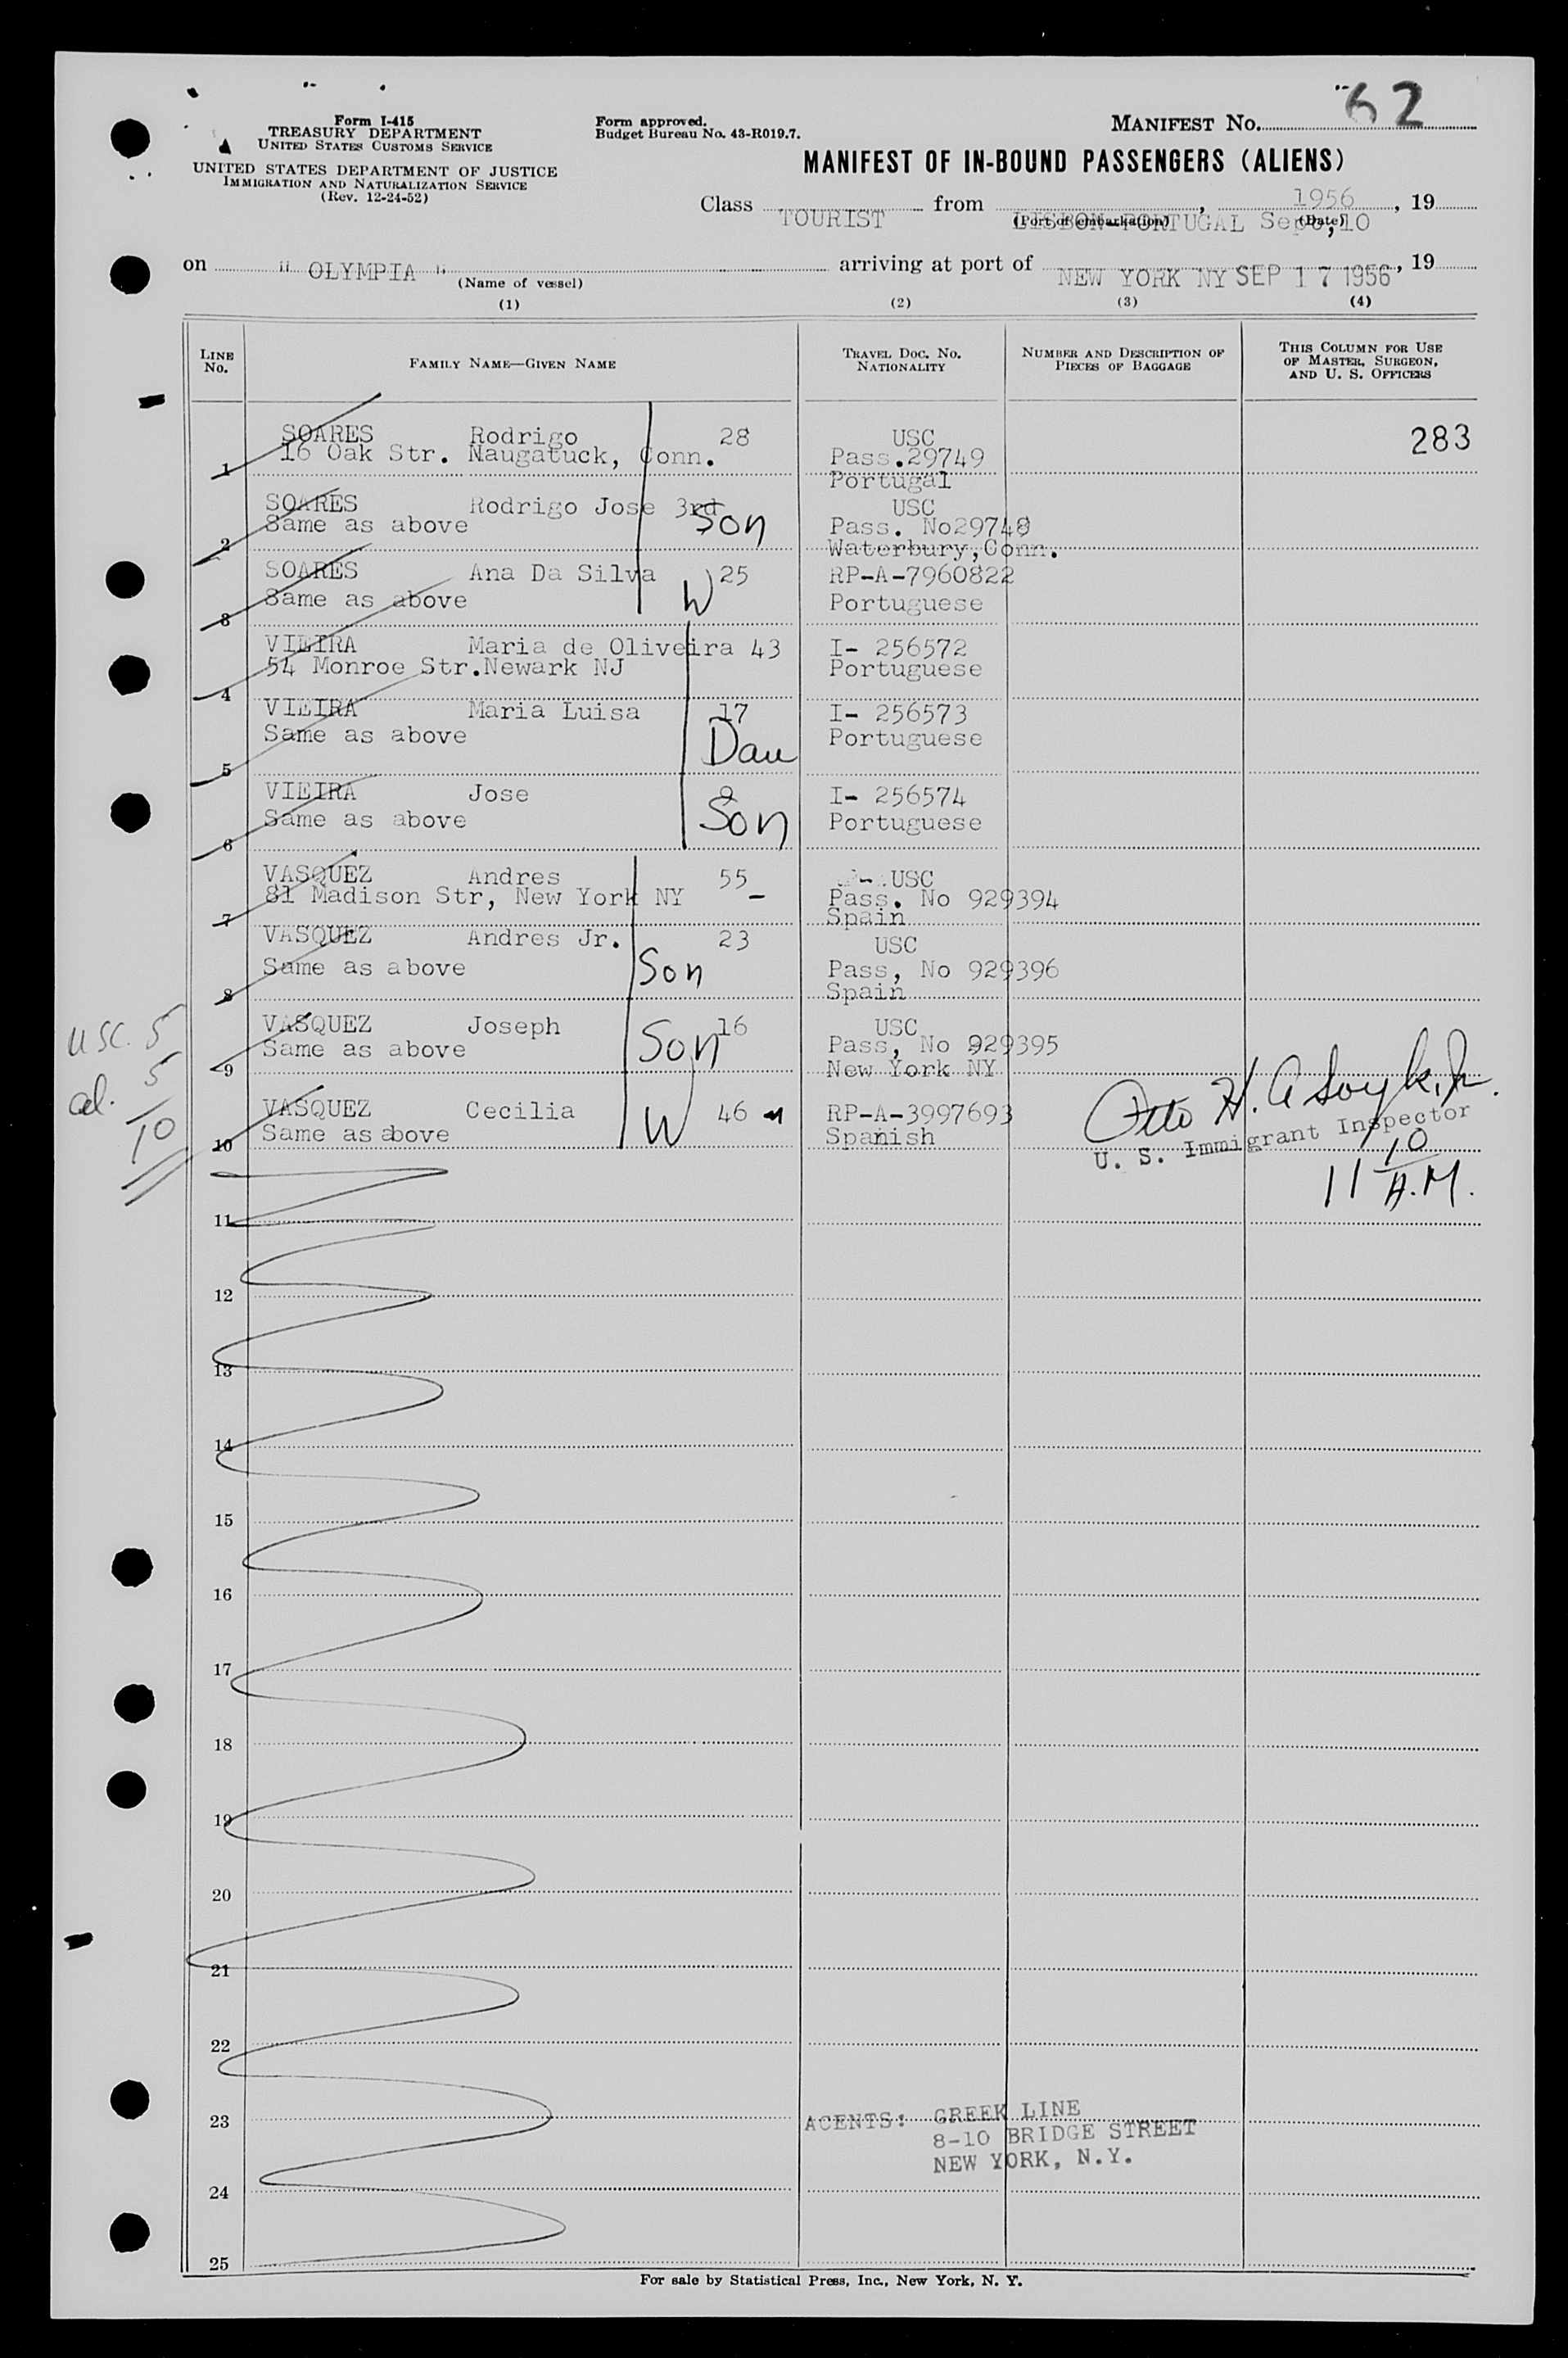 Form I-415
TREASURY DEPARTMENT
UNITED STATES CUSTOMS SERVICE
UNITED STATES DEPARTMENT OF JUSTICE
IMMIGRATION AND NATURALIZATION SERVICE
(Rev. 12-24-52)
Form approved.
Budget Bureau No. 43-R019.7.
MANIFEST NO. 62
MANIFEST OF IN-BOUND PASSENGERS (ALIENS)
Class TOURIST from LISBON-PORTUGAL Sep, 10 1956, 19
(Port of embarkation) (Date)
on " OLYMPIA " arriving at port of NEW YORK NY SEP 17 1956, 19
(Name of vessel)
(1) (2) (3) (4)
LINE NO. FAMILY NAME—GIVEN NAME TRAVEL DOC. NO. NATIONALITY NUMBER AND DESCRIPTION OF PIECES OF BAGGAGE THIS COLUMN FOR USE OF MASTER, SURGEON, AND U. S. OFFICERS
SOARES Rodrigo 28 USC 283
1 16 Oak Str. Naugatuck, Conn. Pass.29749
Portugal
SOARES Rodrigo Jose 3rd Son USC
2 Same as above Pass. No29748
Waterbury,Conn.
SOARES Ana Da Silva W 25 RP-A-7960822
3 Same as above Portuguese
VIEIRA Maria de Oliveira 43 I- 256572
4 54 Monroe Str.Newark NJ Portuguese
VIEIRA Maria Luisa 17 I- 256573
5 Same as above Dau Portuguese
VIEIRA Jose 9 I- 256574
6 Same as above Son Portuguese
VASQUEZ Andres 55 USC
7 81 Madison Str, New York NY - Pass. No 929394
Spain
VASQUEZ Andres Jr. 23 USC
8 Same as above Son Pass, No 929396
Spain
VASQUEZ Joseph Son 16 USC
9 Same as above Pass, No 929395
New York NY
VASQUEZ Cecilia W 46 RP-A-3997693
10 Same as above Spanish
USC. 5
al. 5
10
Otto H.
U. S. Immigrant Inspector
11 10 A.M.
11
12
13
14
15
16
17
18
19
20
21
22
23 AGENTS: GREEK LINE
8-10 BRIDGE STREET
NEW YORK, N.Y.
24
25
For sale by Statistical Press, Inc., New York, N. Y.